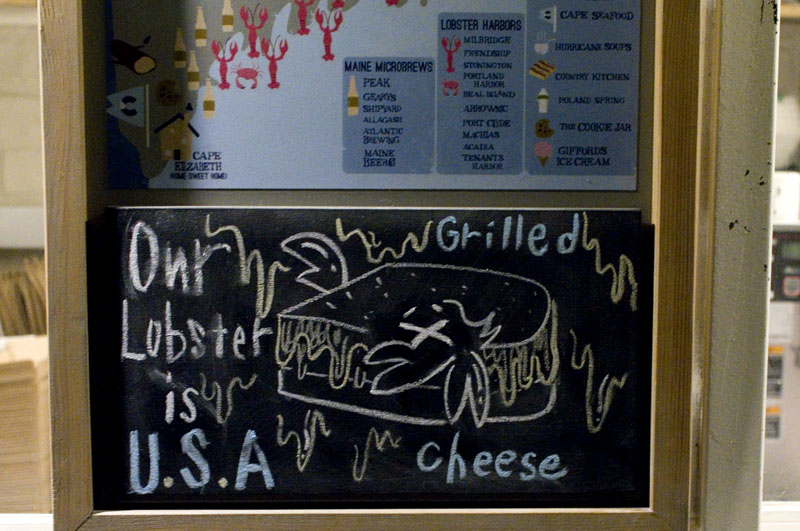 LOBSTER HARBORS
MILBRIDGE
FRIENDSHIP
STONINGTON
PORTLAND
HARBOR
BEAL ISLAND
ARROWSIC
PORT CLYDE
MACHIAS
ACADIA
TENANTS
HARBOR
MAINE MICROBREWS
PEAK
GEARY'S
SHIPYARD
ALLAGASH
ATLANTIC
BREWING
MAINE
BEER CO
CAPE SEAFOOD
HURRICANE SOUPS
COUNTRY KITCHEN
POLAND SPRING
THE COOKIE JAR
GIFFORD'S
ICE CREAM
CAPE
ELIZABETH
(HOME SWEET HOME)
Our
Lobster
is
U.S.A
Grilled
cheese